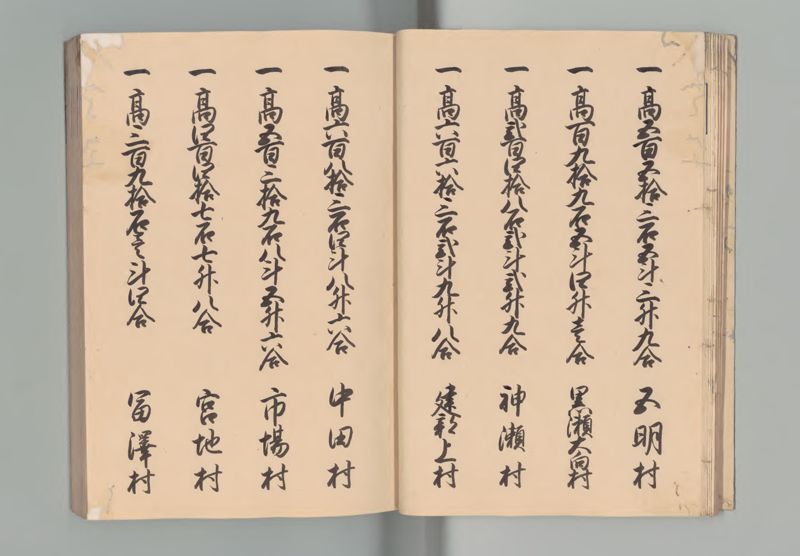 一高五百五拾三石五斗三升九合 五明村
一高百九拾九石五斗四升壱合 黒瀬大向村
一高弐百四拾八石弐斗弐升九合 神瀬村
一高六百六拾三石弐斗九升八合 建部上村
一高六百八拾三石四斗八升六合 中田村
一高五百三拾九石八斗五升六合 市場村
一高四百四拾七石七升八合 宮地村
一高三百九拾石壱斗四合 冨澤村